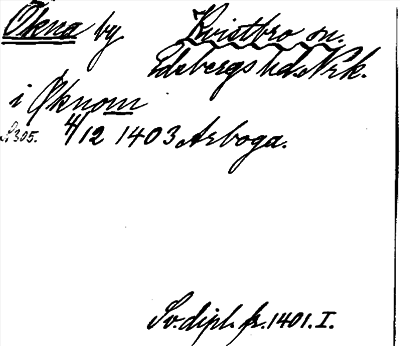 Ökna by Kvistbro sn.
Edebergs hd. Nrk.
i Øknom
S 305. 4/12 1403 Arboga.
Sv. dipl. fr. 1401. I.